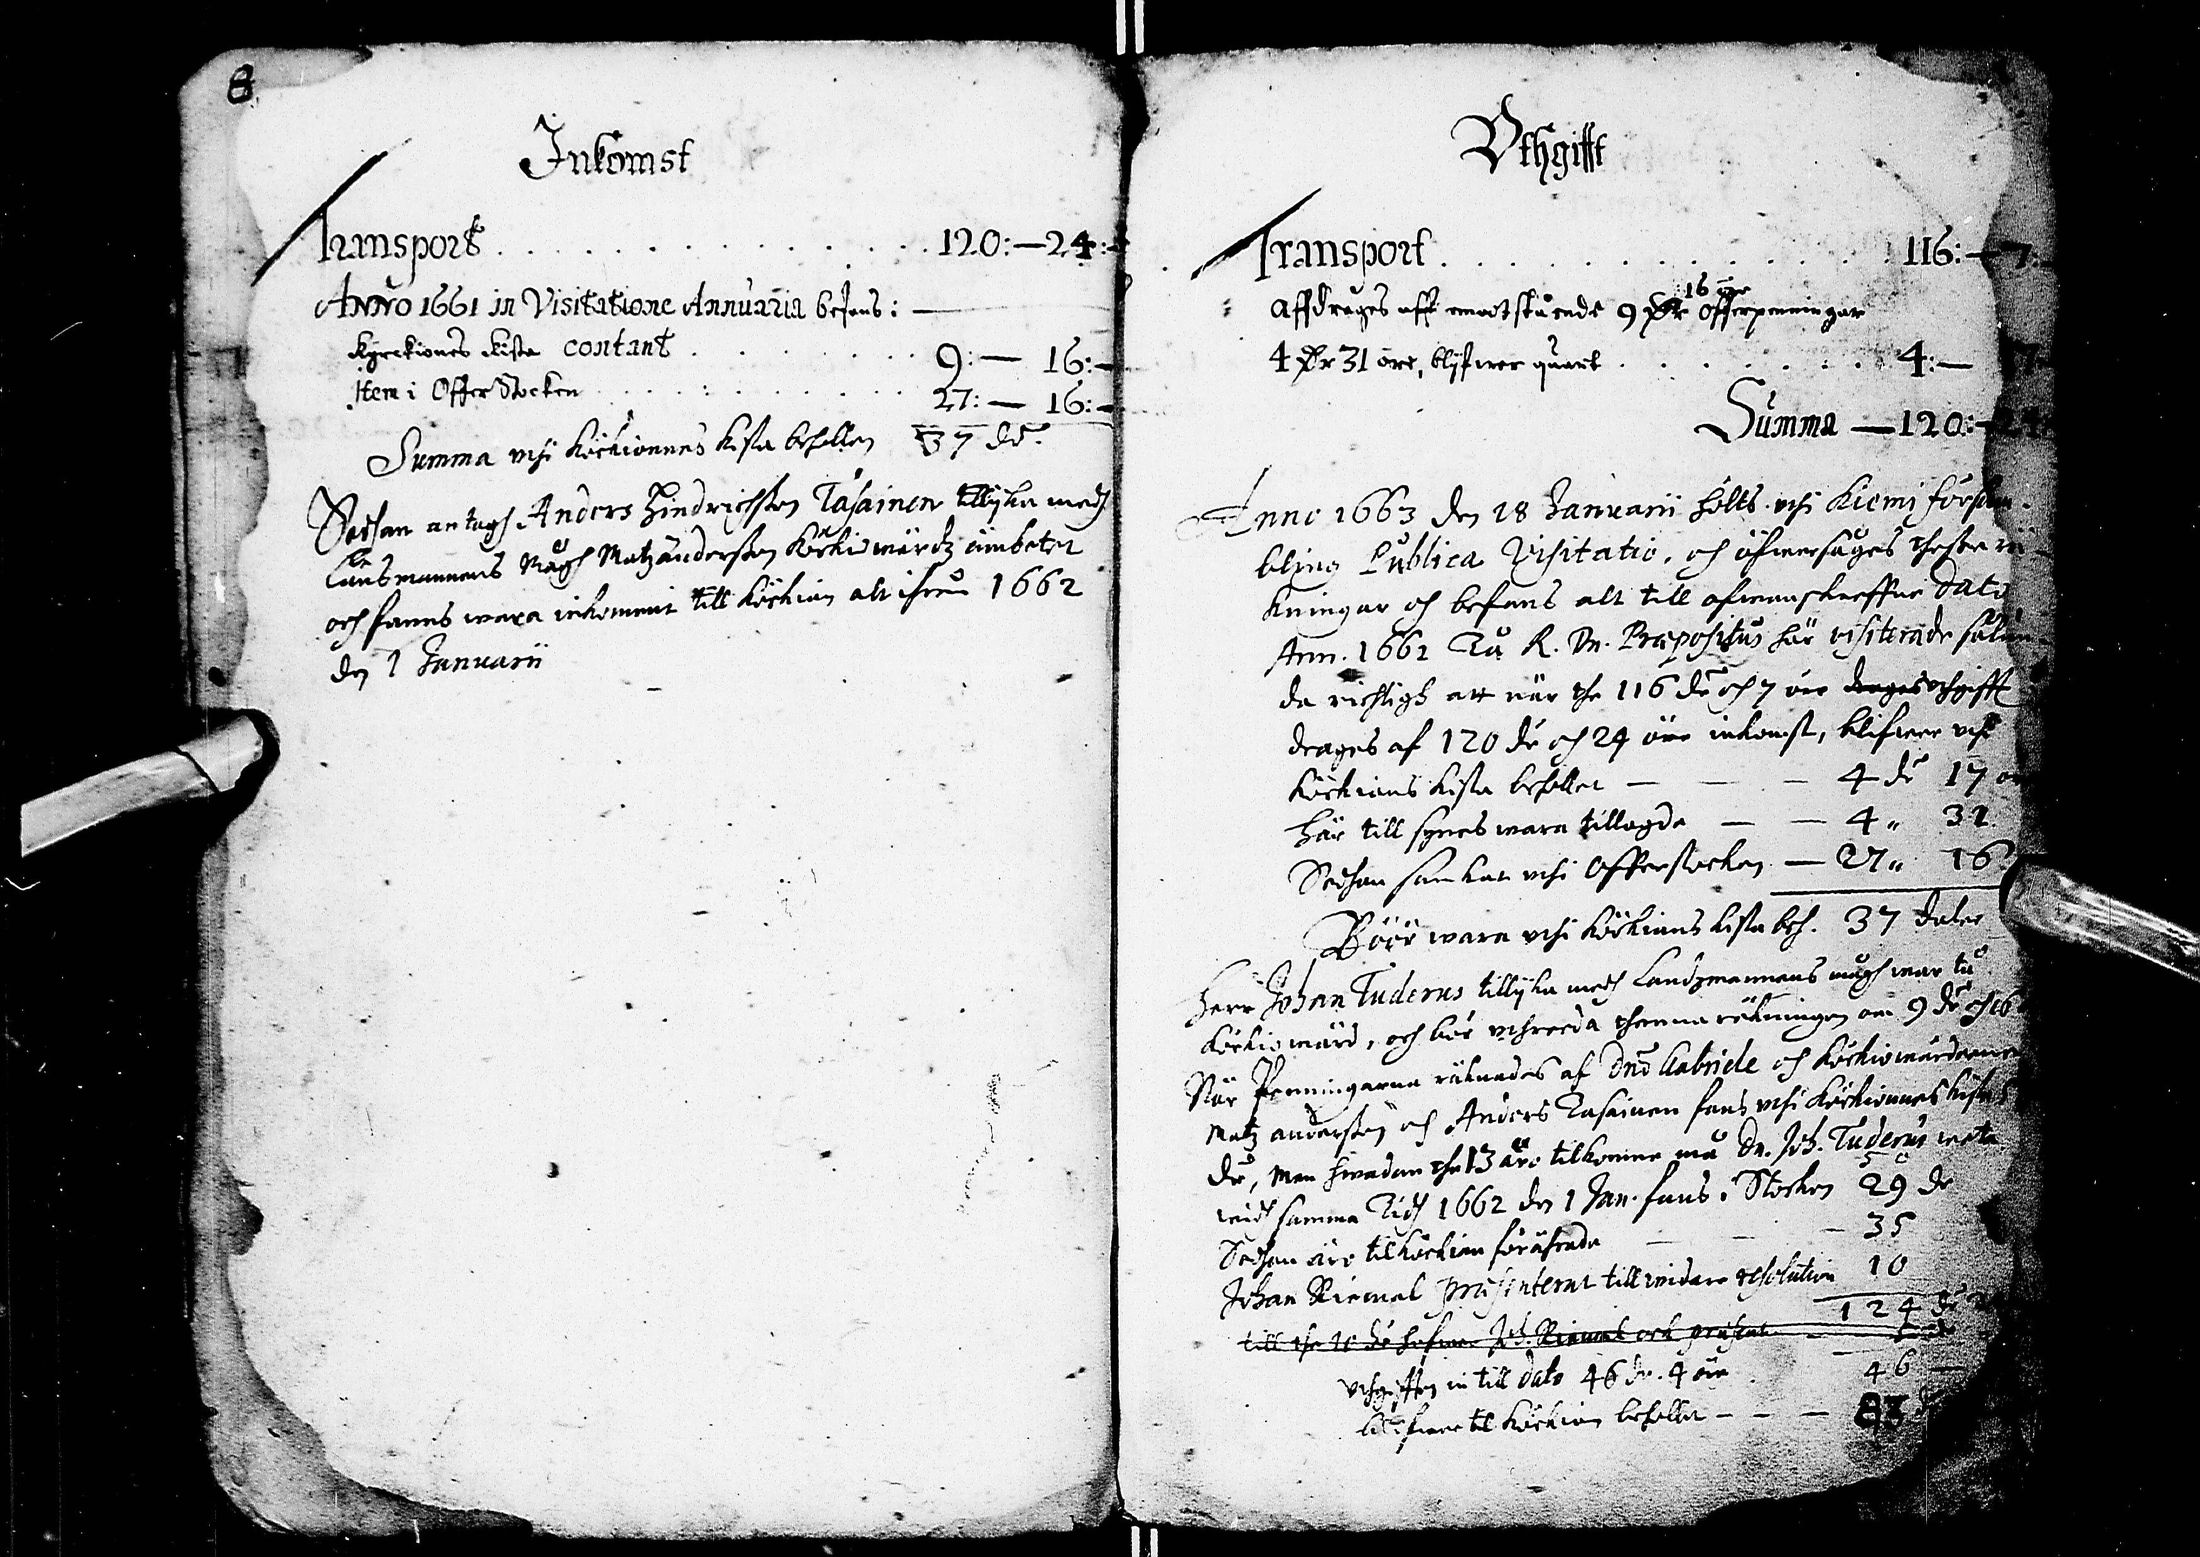 8
Inkomst
Transport . . . . . . . . . . . . 120:—24:—
Anno 1661 in Visitatione Annuaria befans: —
Kyrckiones kista contant . . . . . 9:— 16:—
Item i Offer Stocken . . . . . . . 27:— 16:—
Summa uthi Kÿrkionnes kista behollen 37 dr.
Sedhan antogh Anders Hindrichsson Tasainen tillÿka medh
Lansmannens Mågh Matz Andersson Körkiowärdz ämbetet
och fanns wara inkommit till körkian alt ifrån 1662
den 1 Januarii
Vthgifft
Transport . . . . . . . . . . . . 116:—7:—
16 öre
Affdrages aff emootstående 9 dr Offerpenningar
4 dr 31 öre, blifwer quart . . . . . . 4:— 17
Summa —120:—24
Anno 1663 den 18 Januarii hölts uthi Kiemi försam-
bling Publica Visitatio, och öfwersåges thesse rä-
kningar och befans alt till ofwanskreffne dato
Ann. 1662 Då R. Dn. Præpositus här visiterade sålun-
da richtigh att när the 116 dr och 7 öre drages uthgifft
drages af 120 dr och 24 öre inkomst, blifwer uthi
Körkians kista behollet — — — 4 dr 17 ö
Här till synes wara tillagde — — 4 " 31.
Sedhan samkat uthi Offerstocken — 27 " 16
Böör wara uthi Körkians kista beh. 37 daler
Herr Johan Tuderus tillÿka medh Landzmannens mågh war tå
Körkiowärd, och bör uthreeda thenna räkningen om 9 dr och 16
När Penningarna räknades af Dno Gabriele och Körkiowärderne
Matz Andersson och Anders Tasainen fans uthi Körkionnes kista
dr, men hwadan the 13 äre tilkomne må Dn. Joh. Tuderus weta
widh samma Tidh 1662 den 1 Jan. fans i Stocken 29 dr
Sedhan äre til körkian förährade — — — 35
Johan præsenterat till widare resolution 10
124 dr
till the 10 dr hafwer Joh.
uthgiften in till dato 46 dr. 4 öre . 46 —
blifwer til körkian behollet — — — 83 d